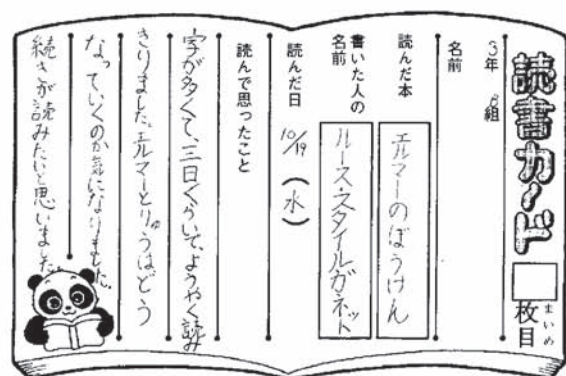 読書カード
枚目
まいめ
3年 8組
名前
読んだ本
エルマーのぼうけん
書いた人の
名前
ルース・スタイルガネット
読んだ日
10/19(水)
読んで思ったこと
字が多くて、三日くらいで、ようやく読み
きりました。エルマーとりゅうはどう
なっていくのか気になりました。
続きが読みたいと思いました。